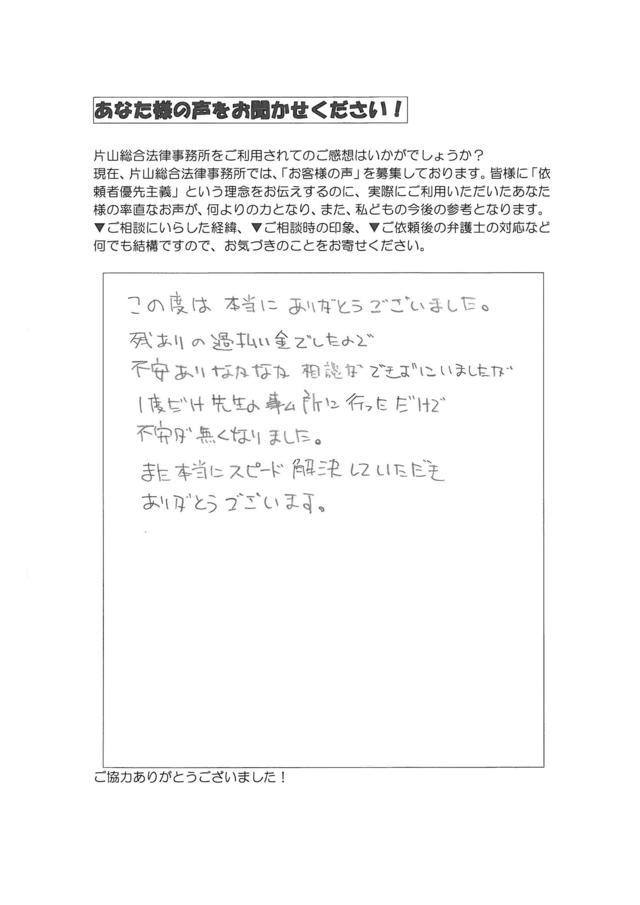 あなた様の声をお聞かせください！
片山総合法律事務所をご利用されてのご感想はいかがでしょうか？
現在、片山総合法律事務所では、「お客様の声」を募集しております。皆様に「依
頼者優先主義」という理念をお伝えするのに、実際にご利用いただいたあなた
様の率直なお声が、何よりの力となり、また、私どもの今後の参考となります。
▼ご相談にいらした経緯、▼ご相談時の印象、▼ご依頼後の弁護士の対応など
何でも結構ですので、お気づきのことをお寄せください。
この度は本当にありがとうございました。
残ありの過払い金でしたので
不安ありなかなか相談ができずにいましたが
1度だけ先生の事ム所に行っただけで
不安が無くなりました。
また本当にスピード解決していただき
ありがとうございます。
ご協力ありがとうございました！